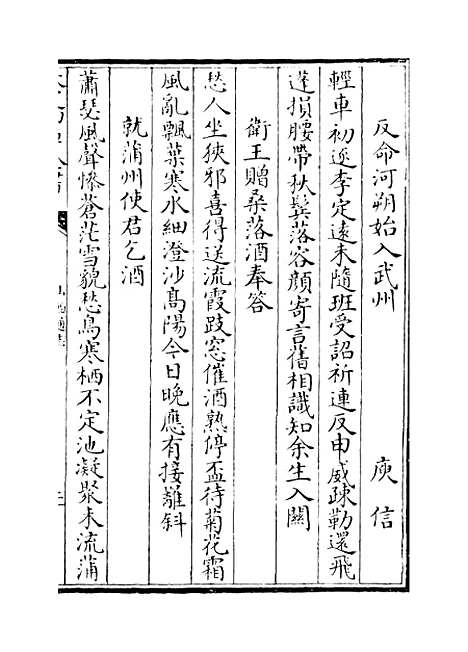 反命河朔始入武州 庾信
輕車初逐李定遠未隨班受詔祈連反申威疎勒還飛
蓬損腰帶秋鬂落容顔寄言舊相識知余生入關
衛王贈桑落酒奉答
愁人坐狹邪喜得送流霞跂窓催酒熟停盃待菊花霜
風亂飄葉寒水細澄沙髙陽今日晚應有接䍦斜
就蒲州使君乞酒
蕭瑟風聲慘蒼茫雪貌愁鳥寒栖不定池凝聚未流蒲